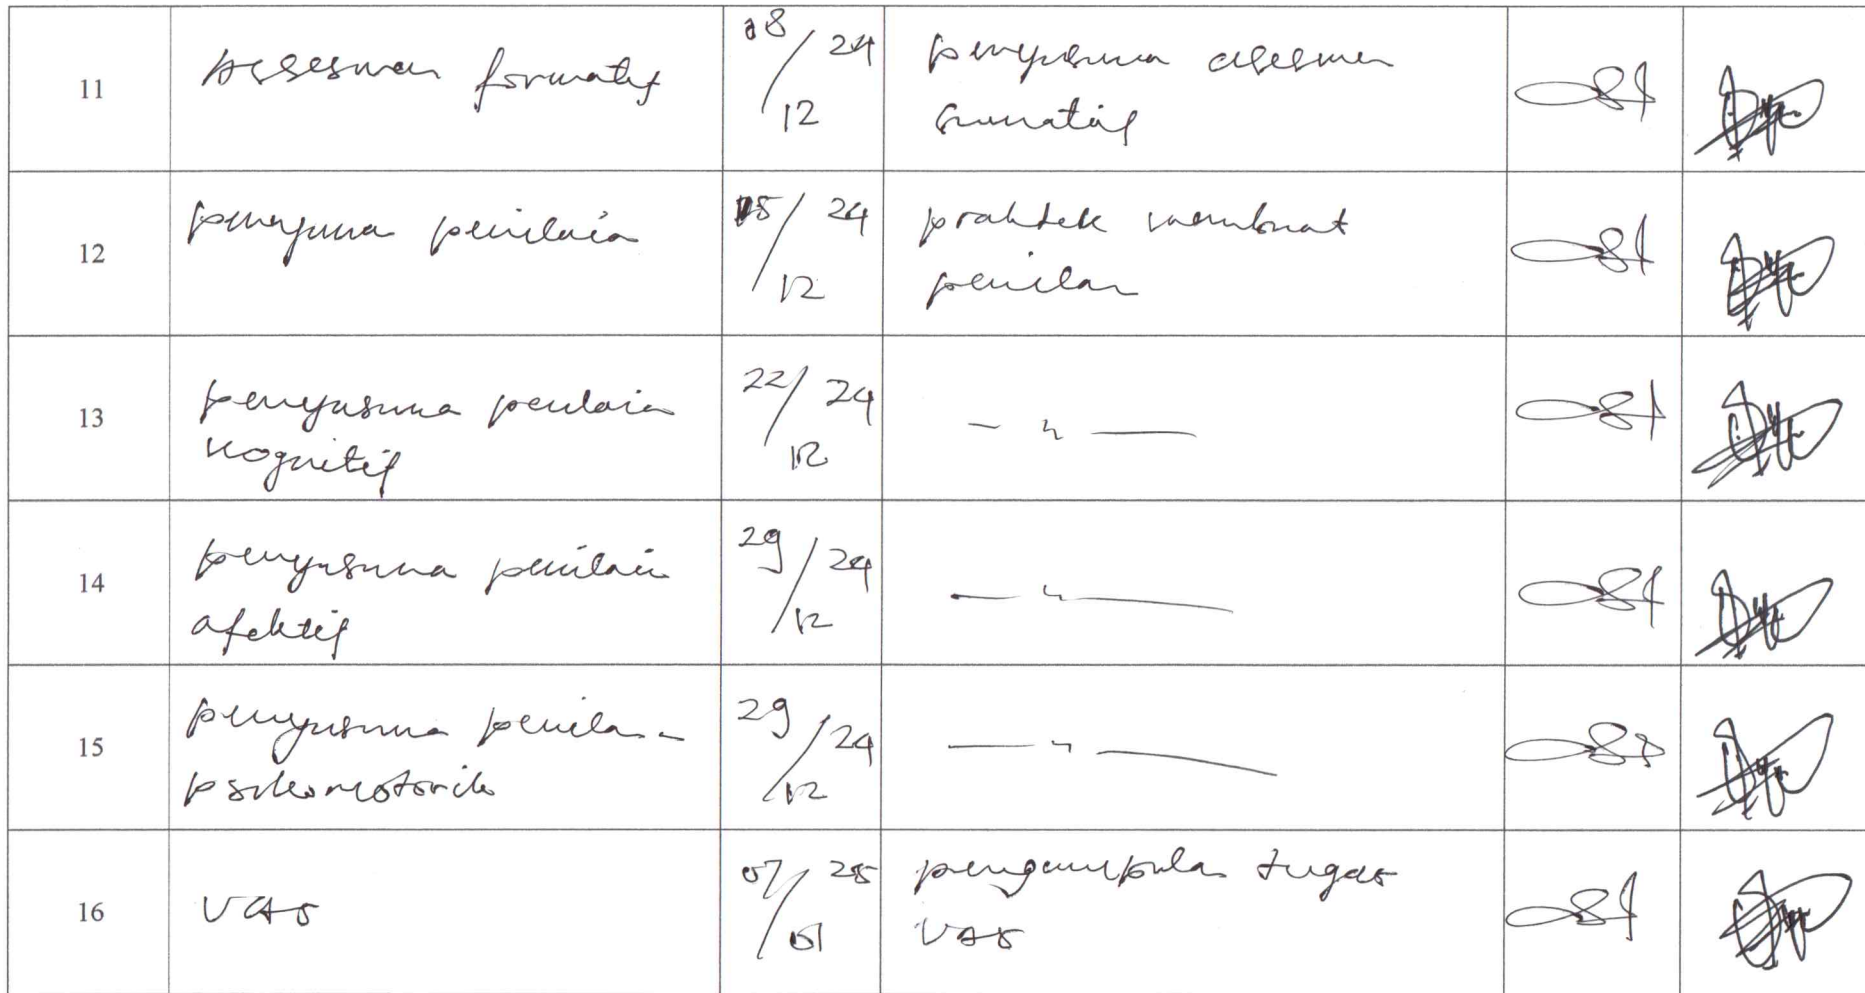 11
Assesmen formatif
18/12 24
penyusunan asesmen
sumatif
12
penyusunan penilaian
15/12 24
praktek membuat
penilaian
13
penyusunan penilaian
kognitif
22/12 24
— 〃 —
14
penyusunan penilaian
afektif
29/12 24
— 〃 —
15
penyusunan penilaian
psikomotorik
29/12 24
— 〃 —
16
UAS
07/01 25
pengumpulan tugas
UAS